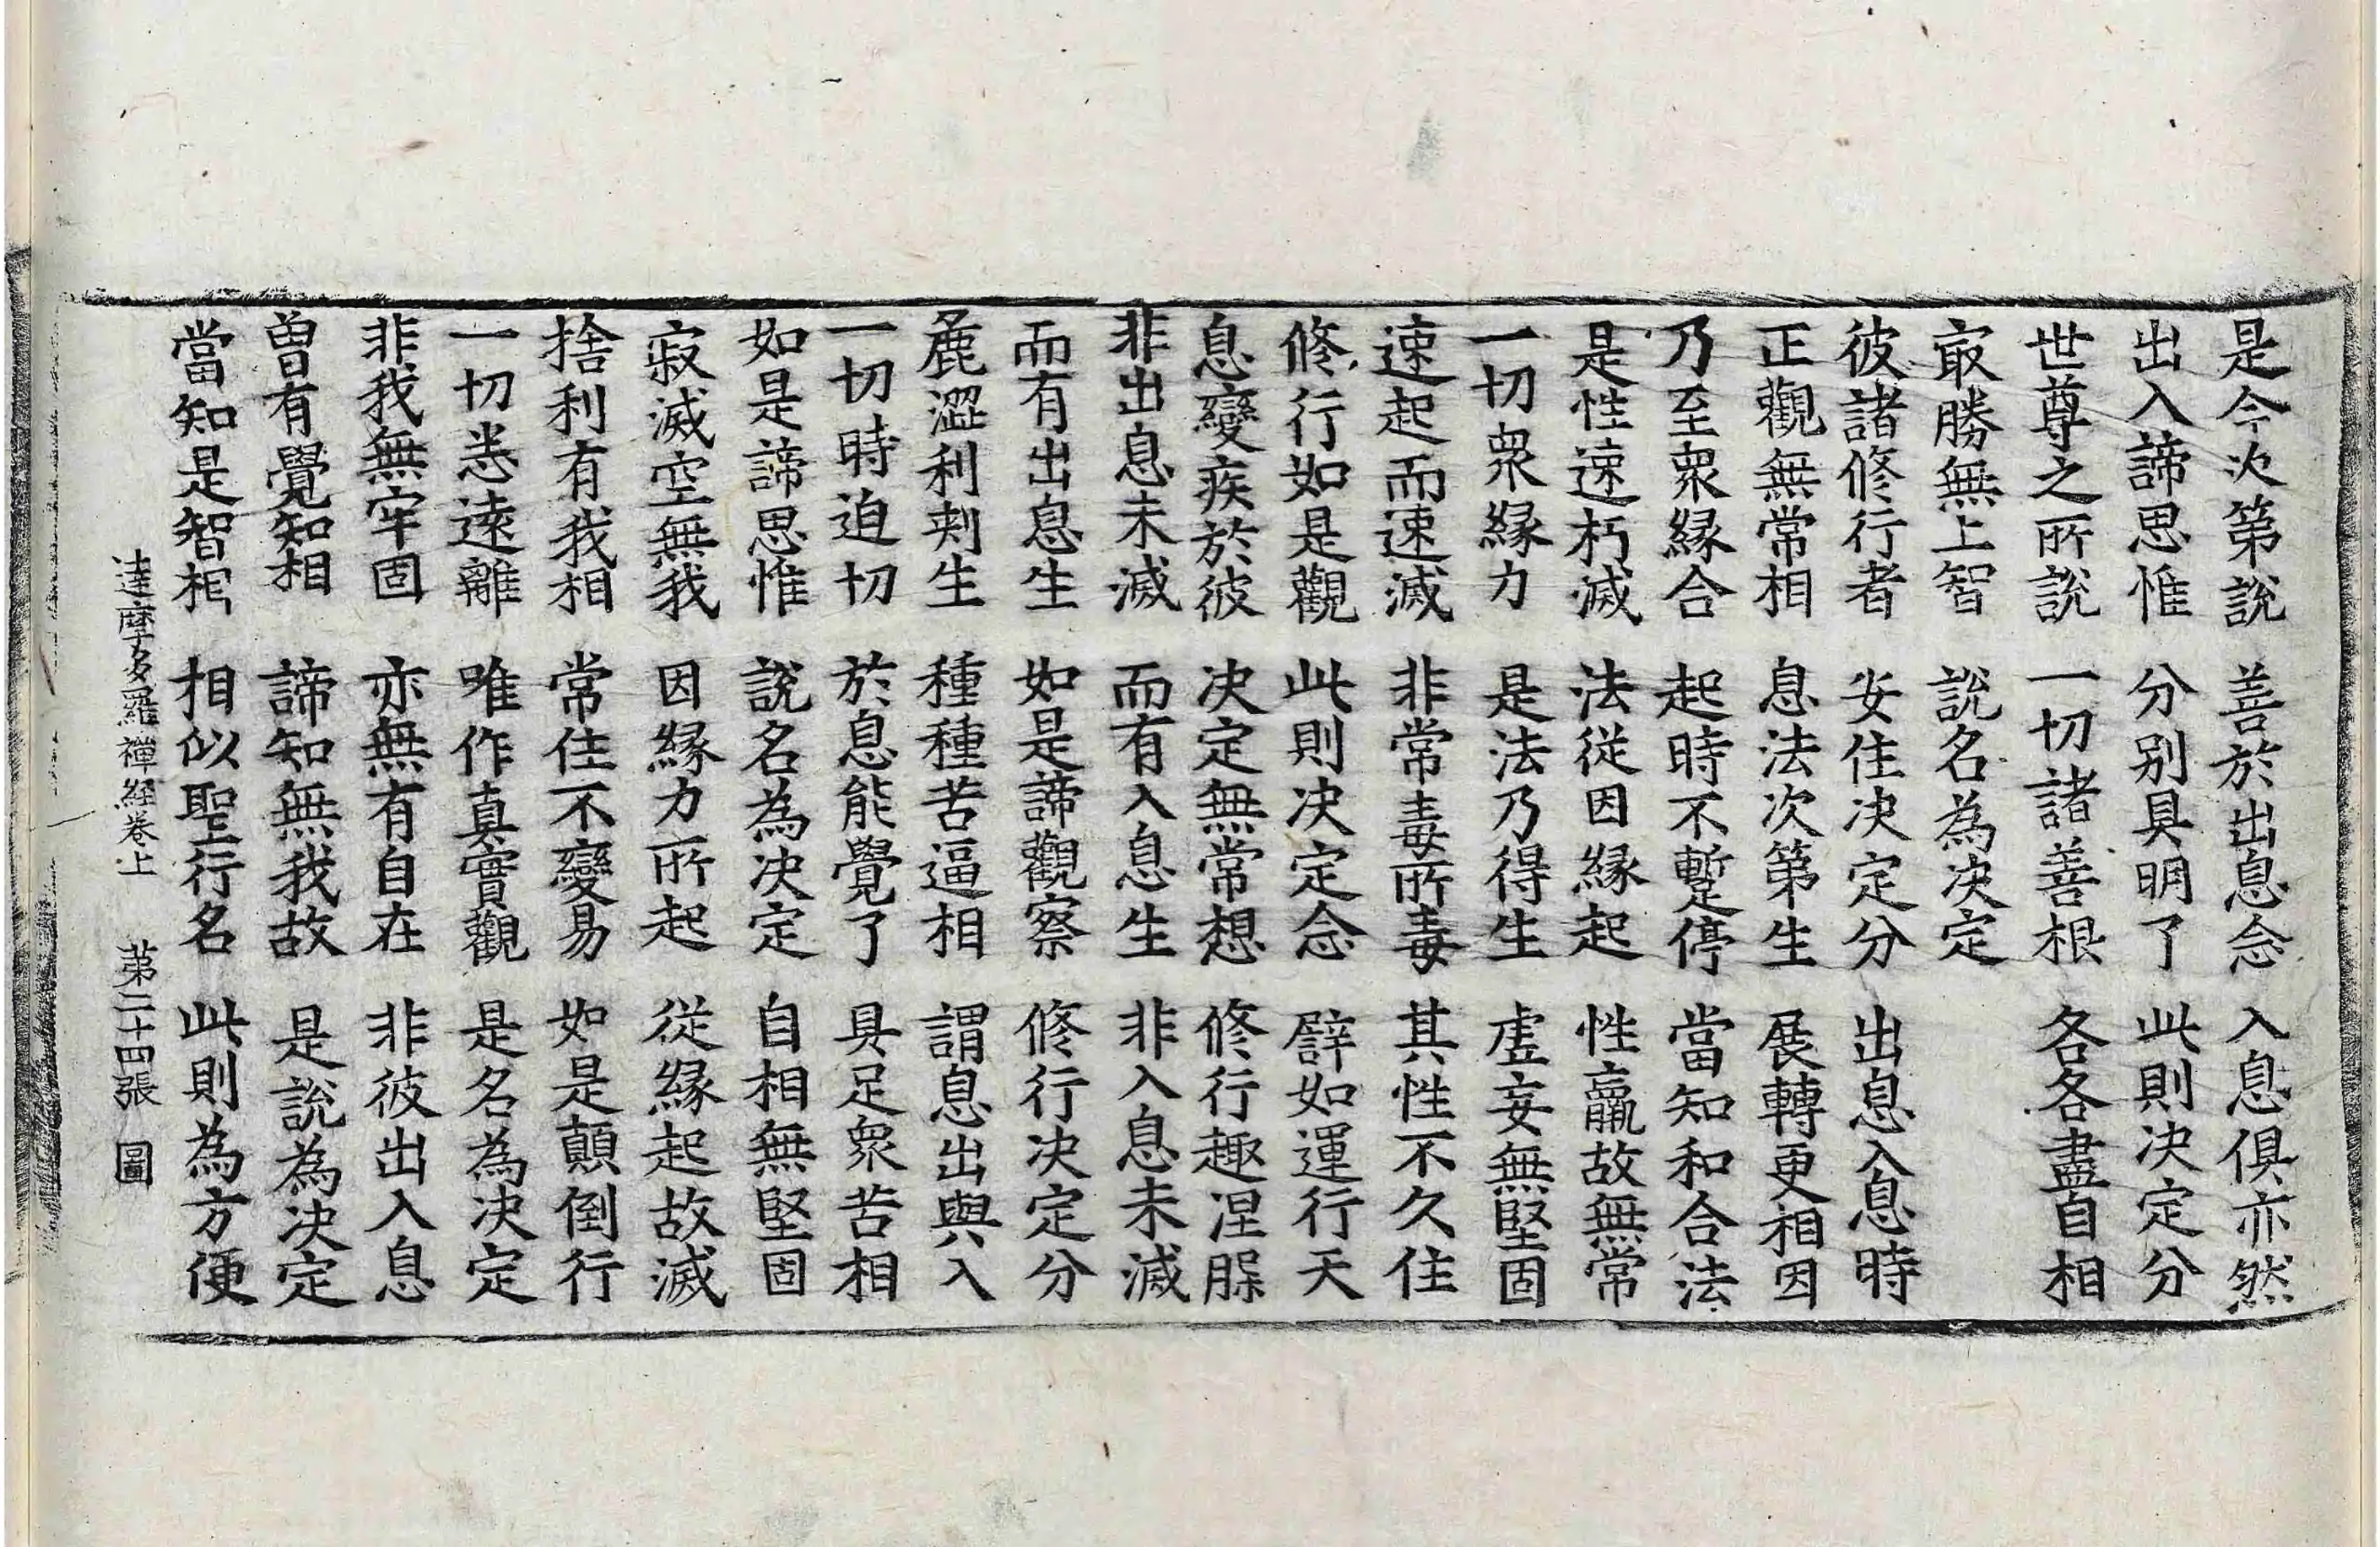 是今次第說　善於出息念　入息俱亦然
出入諦思惟　分別具明了　此則决定分
世尊之所說　一切諸善根　各各盡自相
㝡勝無上智　說名為决定
彼諸修行者　安住决定分　出息入息時
正觀無常相　息法次第生　展轉更相因
乃至衆緣合　起時不暫停　當知和合法
是性速朽滅　法從因緣起　性羸故無常
一切衆緣力　是法乃得生　虛妄無堅固
速起而速滅　非常毒所毒　其性不久住
修行如是觀　此則决定念　譬如運行天
息變疾於彼　决定無常想　修行趣涅槃
非出息未滅　而有入息生　非入息未滅
而有出息生　如是諦觀察　修行决定分
麁澀利刺生　種種苦逼相　謂息出與入
一切時迫切　於息能覺了　具足衆苦相
如是諦思惟　說名為决定　自相無堅固
寂滅空無我　因緣力所起　從緣起故滅
捨利有我相　常住不變易　如是顛倒行
一切悉遠離　唯作真實觀　是名為决定
非我無牢固　亦無有自在　非彼出入息
曽有覺知相　諦知無我故　是說為决定
當知是智相　相似聖行名　此則為方便
達摩多羅禪經卷上　第二十四張　圖